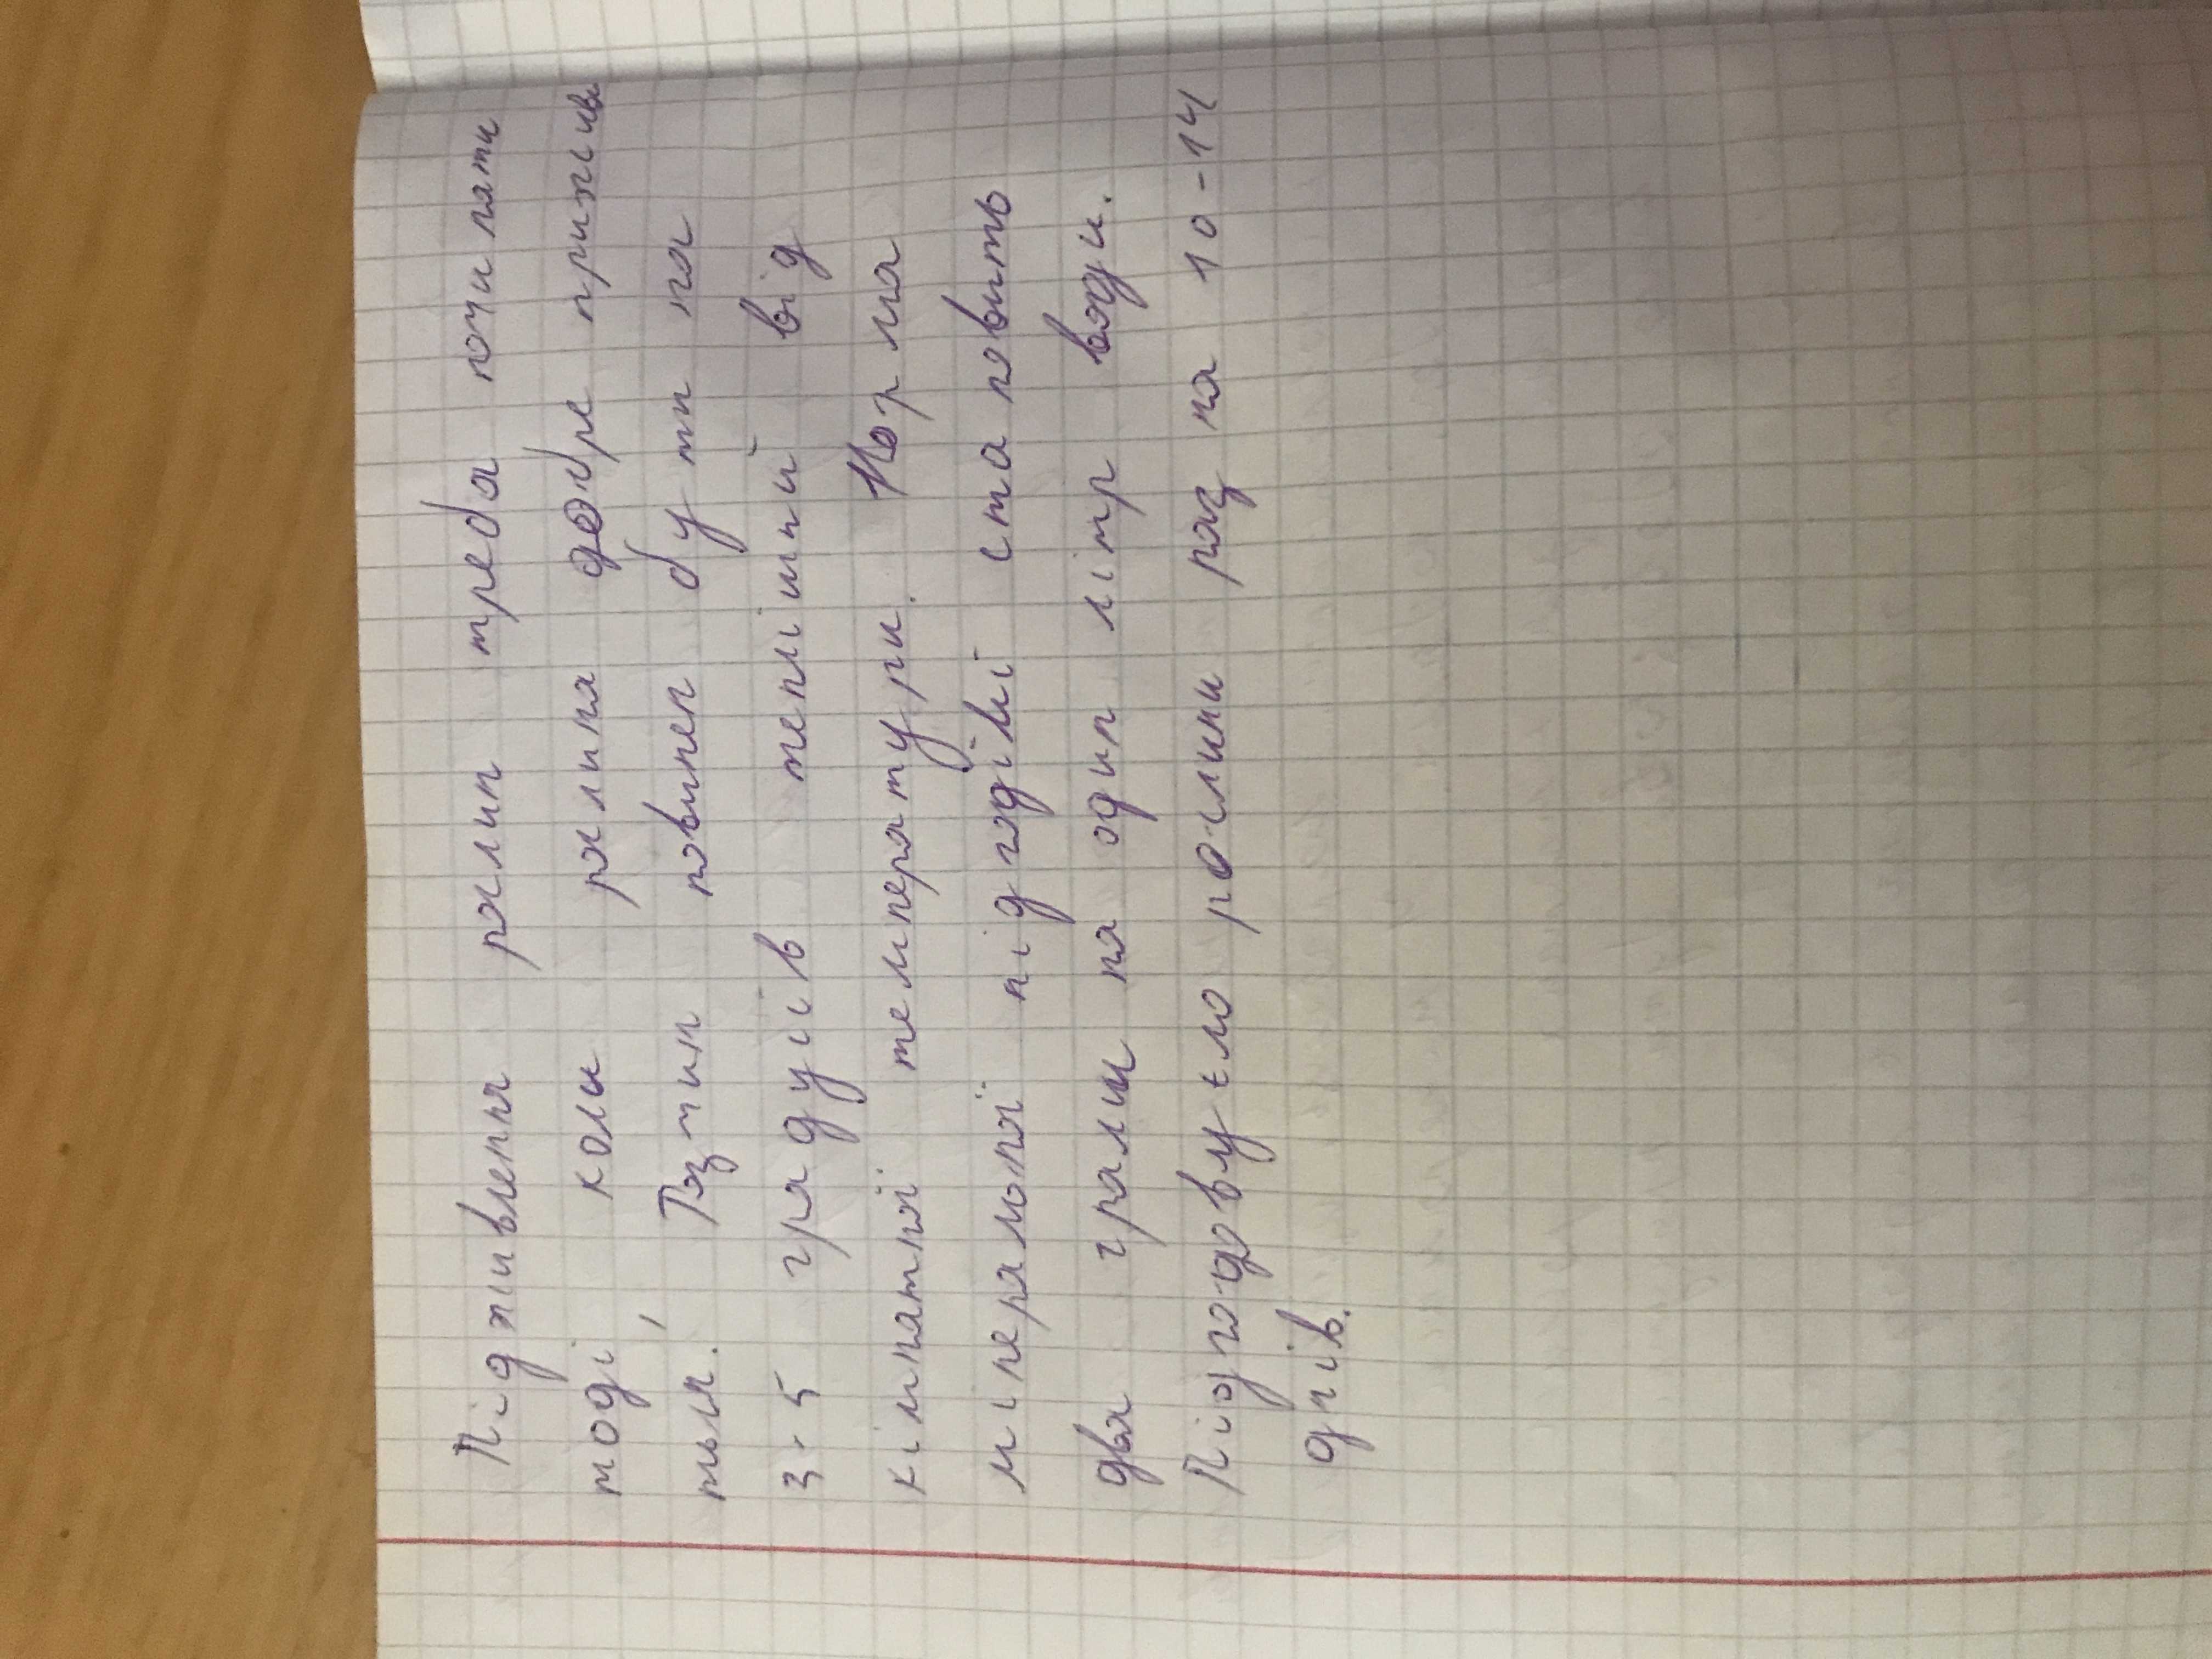 Підживлення рослин треба починати
тоді коли рослина добре прижив
ться. Розчин повинен бути на
3-5 градусів тепліший від
кімнатної температури. Норма
мінеральної підгодівлі становить
два грами на один літр води.
Підгодовуємо рослини раз на 10-14
днів.